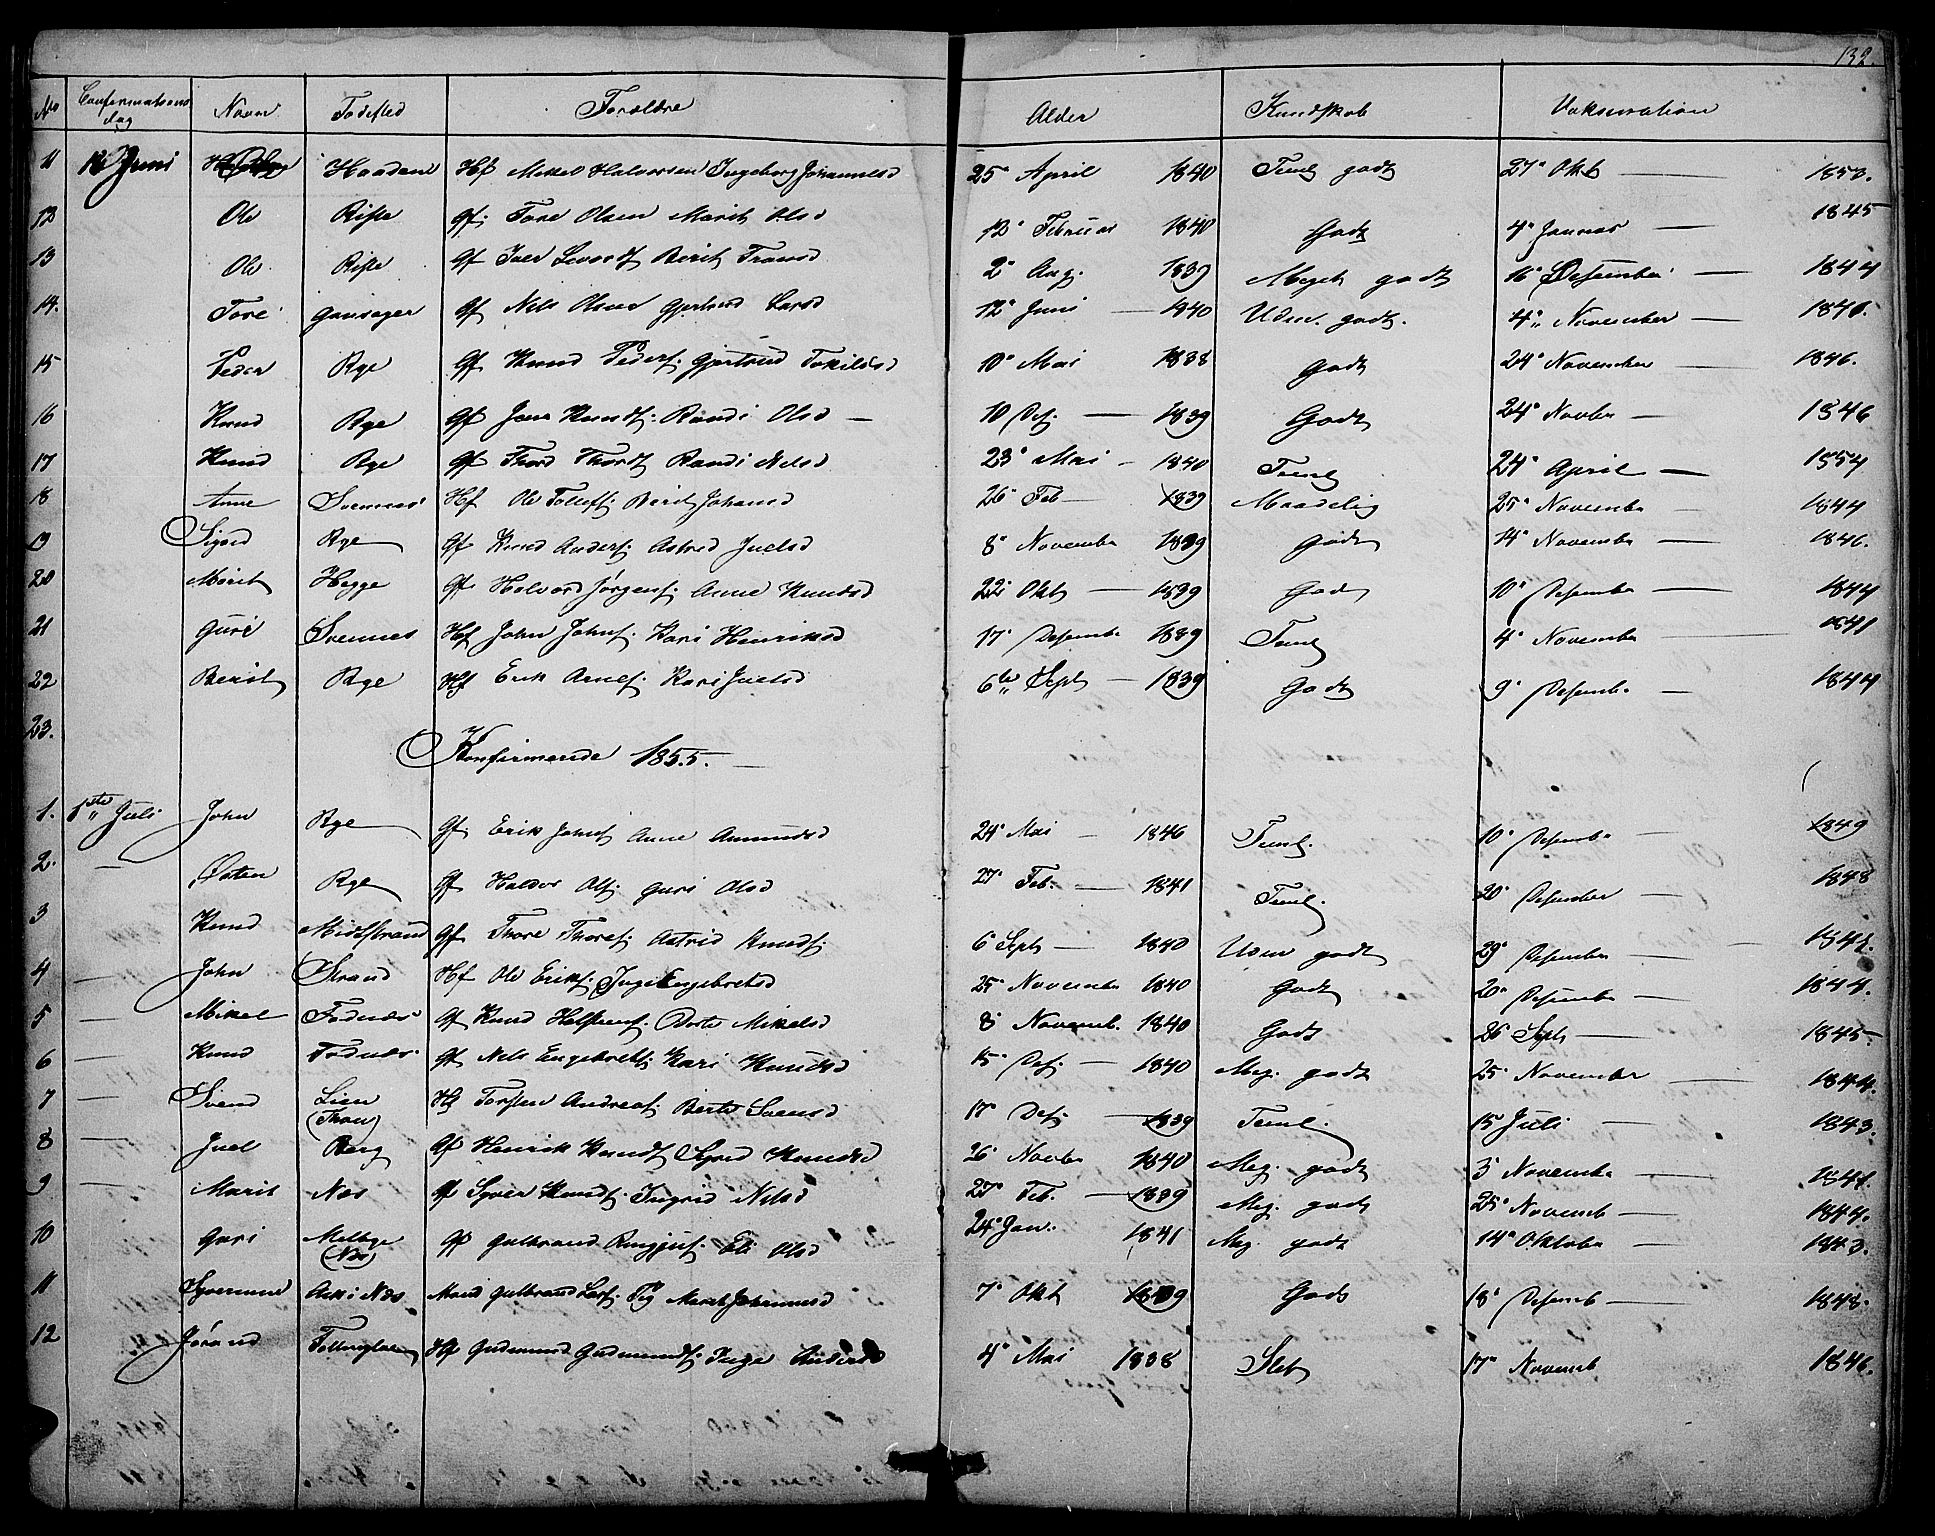 132.
No Confirmations dag Navn Fødested Forældre Alder Kundskab Vaksination
11 Juni Haadem Hf Mikkel Halvorsen Ingeborg Johannesd 25° April 1840 Teml godt 27° Okt — 1853.
12 Ole Rifle Gf. Tore Olsen Marit Olsd 12° Februar 1840 Godt 4° Januar — 1845
13 Ole Rifle Gf Iver Berit Fransd 2° Aug. 1839 Meget godt 16° Desember — 1844
14. Tore Gausager Gf Nels Olsen Gjertrud Larsd 12° Juni — 1840 Udm. godt. 4" November — 1846.
15 Peder Rye Gf Knud Peders. Gjertrud Tokilsd 10° Mai 1838 Godt 24° November — 1846.
16 Knud Rye Gf Jens Knuds. Randi Olsd — 10 Des. — 1839 Godt 24° Novbr — 1846
17 Knud Rye Gf Thord Thords Randi Nelsd 23° Mai — 1840 Teml 24° April — 1854
18 Anne Svennes Hf Ole Tollefs Berit Johansd 26° Feb — 1839 Maadelig 25° November — 1844
19 Sigrid Rye Gf Knud Anders. Astrid Juelsd 8° November 1839 Godt 14° November — 1846.
20 Marit Hegge Gf Halvord Jørgens. Anne Knudsd 22° Okt — 1839 Godt 10° Desember — 1844
21 Guri Svennes Hf John Johns. Kari Henriksd 17° Desember 1839 Teml 4° November — 1841
22 Berit Rye Hf Erik Arnes. Kari Juelsd 6te Sept — 1839 Godt 9° Desember — 1844
23.
Konfirmerede 1855. —
1. 1ste Juli John Rye Gf. Erik Johns Anne Amundsd 24° Mai — 1846 Teml. 10° Desember — 1849
2. — Østen Rye Gf Haldor Ols. Guri Olsd 27° Feb. — 1841 Teml. 20° Desember — 1848
3 Knud Midtstrand Gf Thore Thores. Astrid Knuds. 6 Sept — 1840 Udm godt 29° Desember —
4 — John Strand Hf Ole Eriks. Inge Engebretsd 25° November 1840 Godt 20° Desember — 1844.
5 — Mikel Fodnæs Gf Knud Halstens. Dorte Mikelsd 8° Novemb. 1840 Godt 26 Sept — 1845.
6 — Knud Fodnæs Gf Nels Engebrets. Kari Knudsd 15° Des. — 1840 Meg. godt 25° November — 1844.
7 — Svend Lien (Thon) Hf Torsten Andreas. Berte Svensd 17° Des. — 1839 Teml. 15° Juli — 1843.
8 — Juel Berg Gf Henrik Knuds Sigrid Knudsd 26° Novbr 1840 Meg. godt 3° November —
9 — Marit Næs Gf Syver Knuds. Ingrid Nelsd 27° Feb. — 1839 Meg. godt 25° Novemb — 1844.
10 Guri Melbye (Næs) Gf Gulbrand Eli Olsd 24° Jan. 1841 Meg. godt 14° Oktober — 1843.
11 Syverine Næs Gulbrand Lars. Pig Marit Johannesd 7° Okt 1839 Godt 18° Desemb — 1848.
12 Jørand Hf Gudmund Gudmunds. Inge Andersd 4° Mai 1838 Slet 17° Novemb 1846.